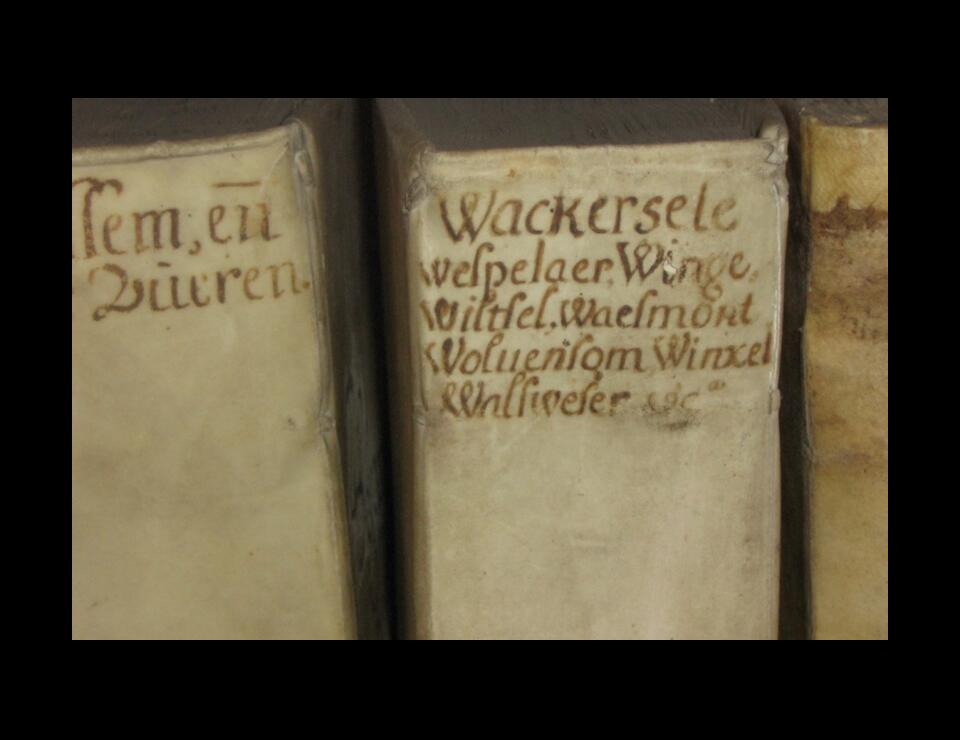 ſſem, en̄
Dueren.
Wackersele
weſpelaer. Winge,
Wiltſel. Waeſmont
Woluenſom Winxel
Wallweſer &cᵃ